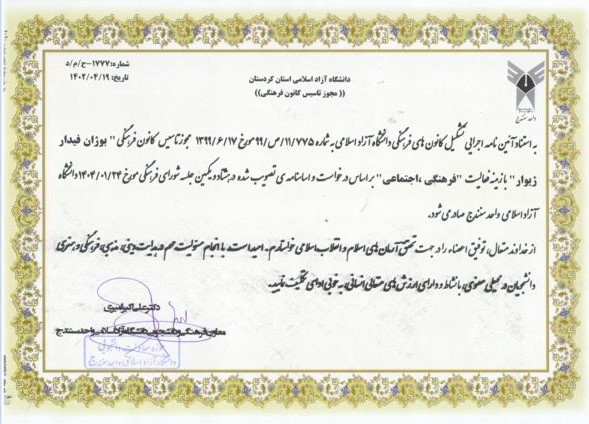 شماره: ۱۷۷۷-ح/م/د
تاریخ: ۱۴۰۲/۰۴/۱۹
دانشگاه آزاد اسلامی استان کردستان
(( مجوز تاسیس کانون فرهنگی))
واحد سنندج
به استناد آئین نامه اجرایی تشکیل کانون های فرهنگی دانشگاه آزاد اسلامی به شماره ۱۱/۷۷۵/ص/۹۹ مورخ ۱۳۹۹/۶/۱۷ مجوز تاسیس کانون فرهنگی " بوژان فیدار
ژیوار " با زمینه فعالیت "فرهنگی ،اجتماعی" بر اساس درخواست و اساسنامه ی تصویب شده در هشتاد و یکمین جلسه شورای فرهنگی مورخ ۱۴۰۴/۰۱/۲۴ دانشگاه
آزاد اسلامی واحد سنندج صادر می شود.
از خداوند متعال، توفیق اعضاء را در جهت تحقق آرمان های اسلام و انقلاب اسلامی خواستارم. امید است با انجام مسئولیت مهم هدایت دینی، مذهبی، فرهنگی و هنری
دانشجویان در محیطی معنوی، با نشاط و دارای ارزش های متعالی انسانی، به خوبی ادای تکلیف نمایید.
دکتر علی اکبر امیری
معاون فرهنگی و دانشجویی دانشگاه آزاد اسلامی واحد سنندج
دانشگاه آزاد اسلامی واحد سنندج